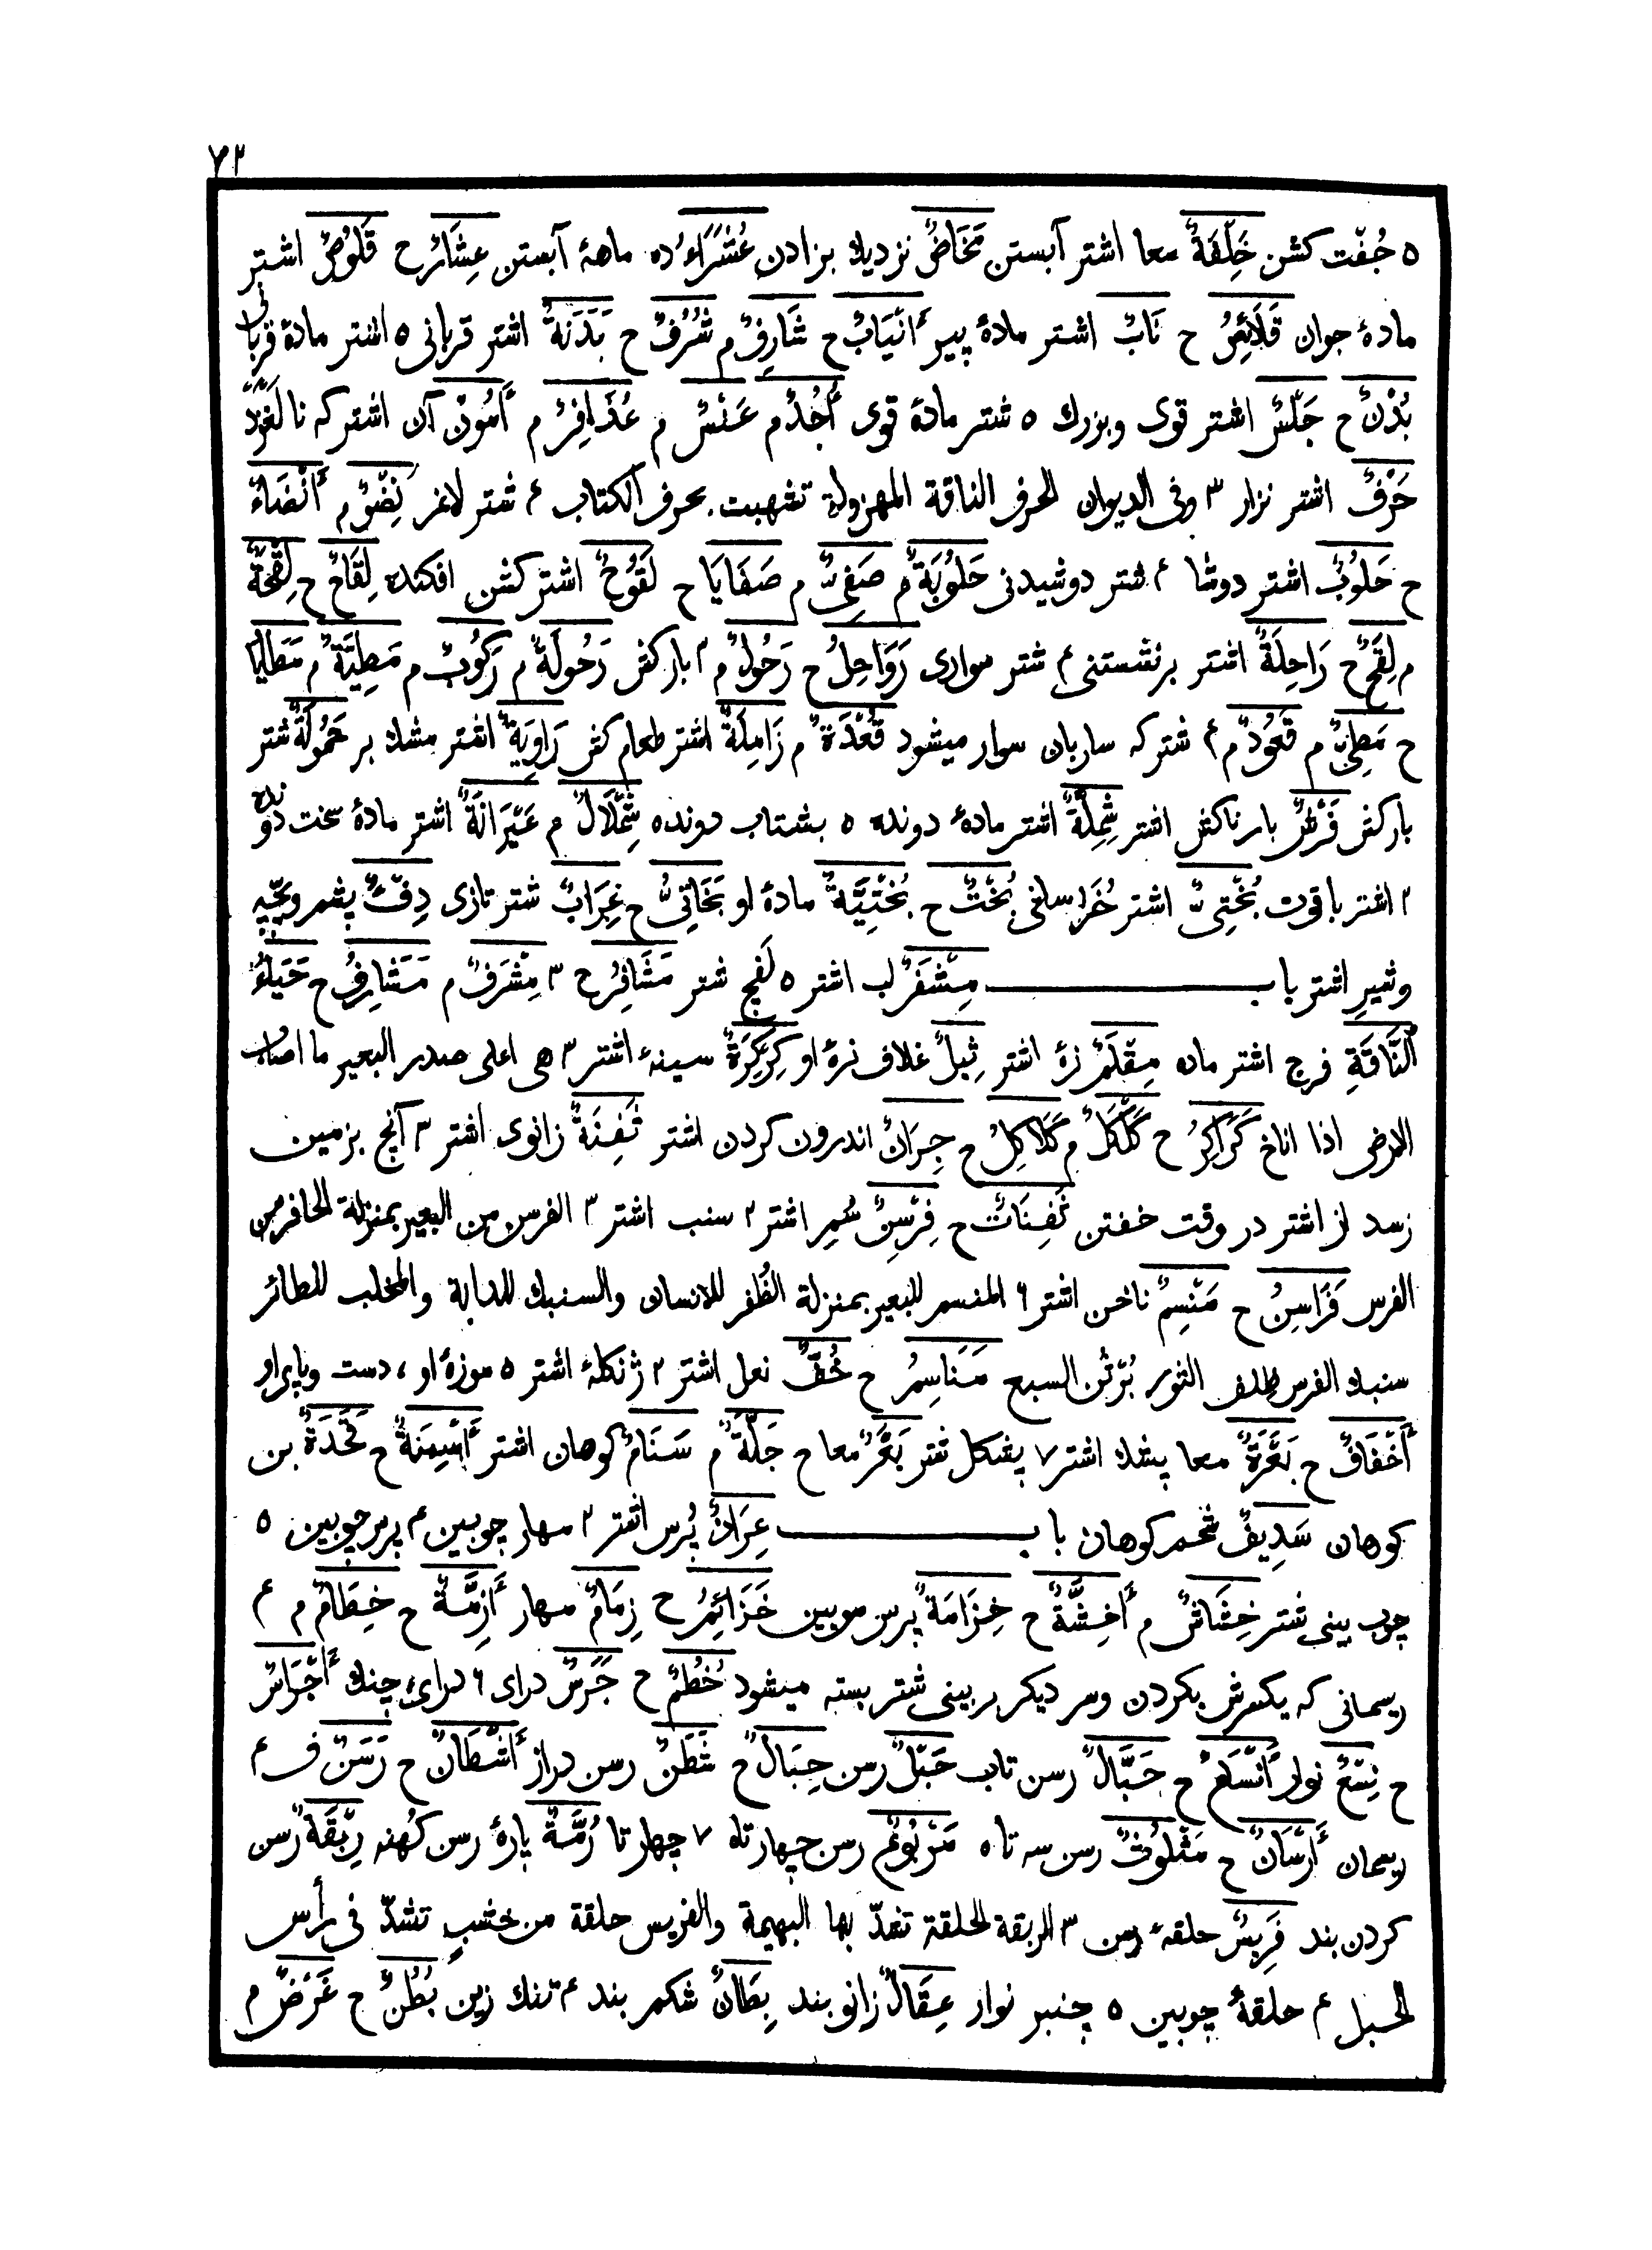 ٧٢
٥ جُفْت كشن خَلِفَةٌ معا اشتر آبستن مَخَاضٌ نزديك بزادن عُشَرَاءُ ده ماههٔ آبستن عِشَارٌ ح قَلُوصٌ اشتر
مادهٔ جوان قَلَائِصُ ح نَابٌ اشتر مادهٔ پير أَنْيَابٌ ح شَارِفٌ م شُرُفٌ ح بَدَنَةٌ اشتر قربانى ٥ اشتر مادهٔ قربانى
بُدْنٌ ح جَلْسٌ اشتر قوى وبزرك ٥ شتر مادهٔ قوى أُجُدٌ م عَنْسٌ م عُذَافِرٌ م أَمُونٌ آن اشتر كه نا لغزد
حَرْفٌ اشتر نزار ٣ وفى الديوان الحرف الناقة المهزولة تشبهت بحرف الكتاب ۴ شتر لاغر نِضْوٌ م أَنْضَاءٌ
ح حَلُوبٌ اشتر دوشا ۴ شتر دوشيدنى حَلُوبَةٌ م صَفِىٌّ م صَفَايَا ح لَقُوحٌ اشتر كشن افكنده لِقَاحٌ ح لِقْحَةٌ
م لِقَحٌ ح رَاحِلَةٌ اشتر برنشستنى ۴ شتر سوارى رَوَاحِلُ ح رَحُولٌ م ٢ باركش رَحُولَةٌ م رَكُوبٌ م مَطِيَّةٌ م مَطَايَا
ح مَطِىٌّ م قَعُودٌ م ۴ شتر كه ساربان سوار ميشود قُعْدَةٌ م زَامِلَةٌ اشتر طعام كش رَاوِيَةٌ اشتر مشك بر حَمُولَةٌ شتر
باركش فَرْشٌ بار ناكش اشتر شِمِلَّةٌ اشتر مادهٔ دونده ٥ بشتاب دونده شِمْلَالٌ م عَيْرَانَةٌ اشتر مادهٔ سخت دونده
٢ اشتر با قوت بُخْتِىٌّ اشتر خُراسانى بُخْتٌ ح بُخْتِيَّةٌ مادهٔ او بَخَاتِىُّ ح عِرَابٌ شتر تازى دِفْءٌ پشم وبچّهٔ
وشيرِ اشتر باب مِشْفَرٌ لب اشتر ٥ لَفج شتر مَشَافِرُ ح ٣ مِشْرَفٌ م مَشَارِفُ ح حَيَاءُ
النَّاقَةِ فرج اشتر ماده مِقْلَمٌ نرهٔ اشتر ثِيلٌ غلاف نرهٔ او كِرْكِرَةٌ سينهٔ اشتر ٣ هى اعلى صدر البعير ما اصاب
الارض اذا اناخ كَرَاكِرُ ح كَلْكَلٌ م كَلَاكِلُ ح جِرَانٌ اندرون كردن اشتر ثَفِنَةٌ زانوى اشتر ٣ آنچ بزمين
رسد از اشتر در وقت خفتن ثَفِنَاتٌ ح فِرْسِنٌ سُمِ اشتر ٢ سنب اشتر ٣ الفرسن من البعير بمنزلة الحافر من
الفرس فَرَاسِنُ ح مَنْسِمٌ ناخن اشتر ٦ المنسم للبعير بمنزلة الظُفر للانسان والسنبك للدابة والمخلب للطائر
سنبك الفرس ظلف الثور بُرْثُن السبع مَنَاسِمُ ح خُفٌّ نعل اشتر ٢ ژنكلهٔ اشتر ٥ موزهٔ او ، دست وپاى او
أَخْفَافٌ ح بَعْرَةٌ معا پشك اشتر ٧ پشكل شتر بَعْرٌ معا ح جَلَّةٌ م سَنَامٌ كوهان اشتر أَسْنِمَةٌ ح قَحَدَةٌ بن
كوهان سَدِيفٌ شحم كوهان باب عِرَانٌ بُرسِ اشتر ٢ مهار چوبين ۴ برس چوبين ٥
چوب بينى شتر خِشَاشٌ م أَخِشَّةٌ ح خِزَامَةٌ برس موبين خَزَائِمُ ح زِمَامٌ مهار أَزِمَّةٌ ح خِطَامٌ م ۴
ريسمانى كه يكسرش بكردن وسر ديكر بر بينى شتر بسته ميشود خُطُمٌ ح جَرَسٌ دراى ٦ دراى چنك أَجْرَاسٌ
ح نِسْعٌ نوار أَنْسَاعٌ ح حَبَّالٌ رسن تاب حَبْلٌ رسن حِبَالٌ ح شَطَنٌ رسن دراز أَشْطَانٌ ح رَسَنٌ ف ۴
ريسمان أَرْسَانٌ ح مَثْلُوثٌ رسن سه تاه مَرْبُوعٌ رسن چهار تاه ٧ چهار تا رُمَّةٌ پارهٔ رسن كُهنه رِبْقَةٌ رسن
كردن بند فَرِيسٌ حلقهٔ رسن ٣ الربقة الحلقة تشدّ بها البهيمة والفريس حلقة من خشبٍ تشدّ فى رأس
الحبل ۴ حلقهٔ چوبين ٥ چنبر نوار عِقَالٌ زانو بند بِطَانٌ شكم بند ۴ تنك زين بُطُنٌ ح غَرْضٌ م